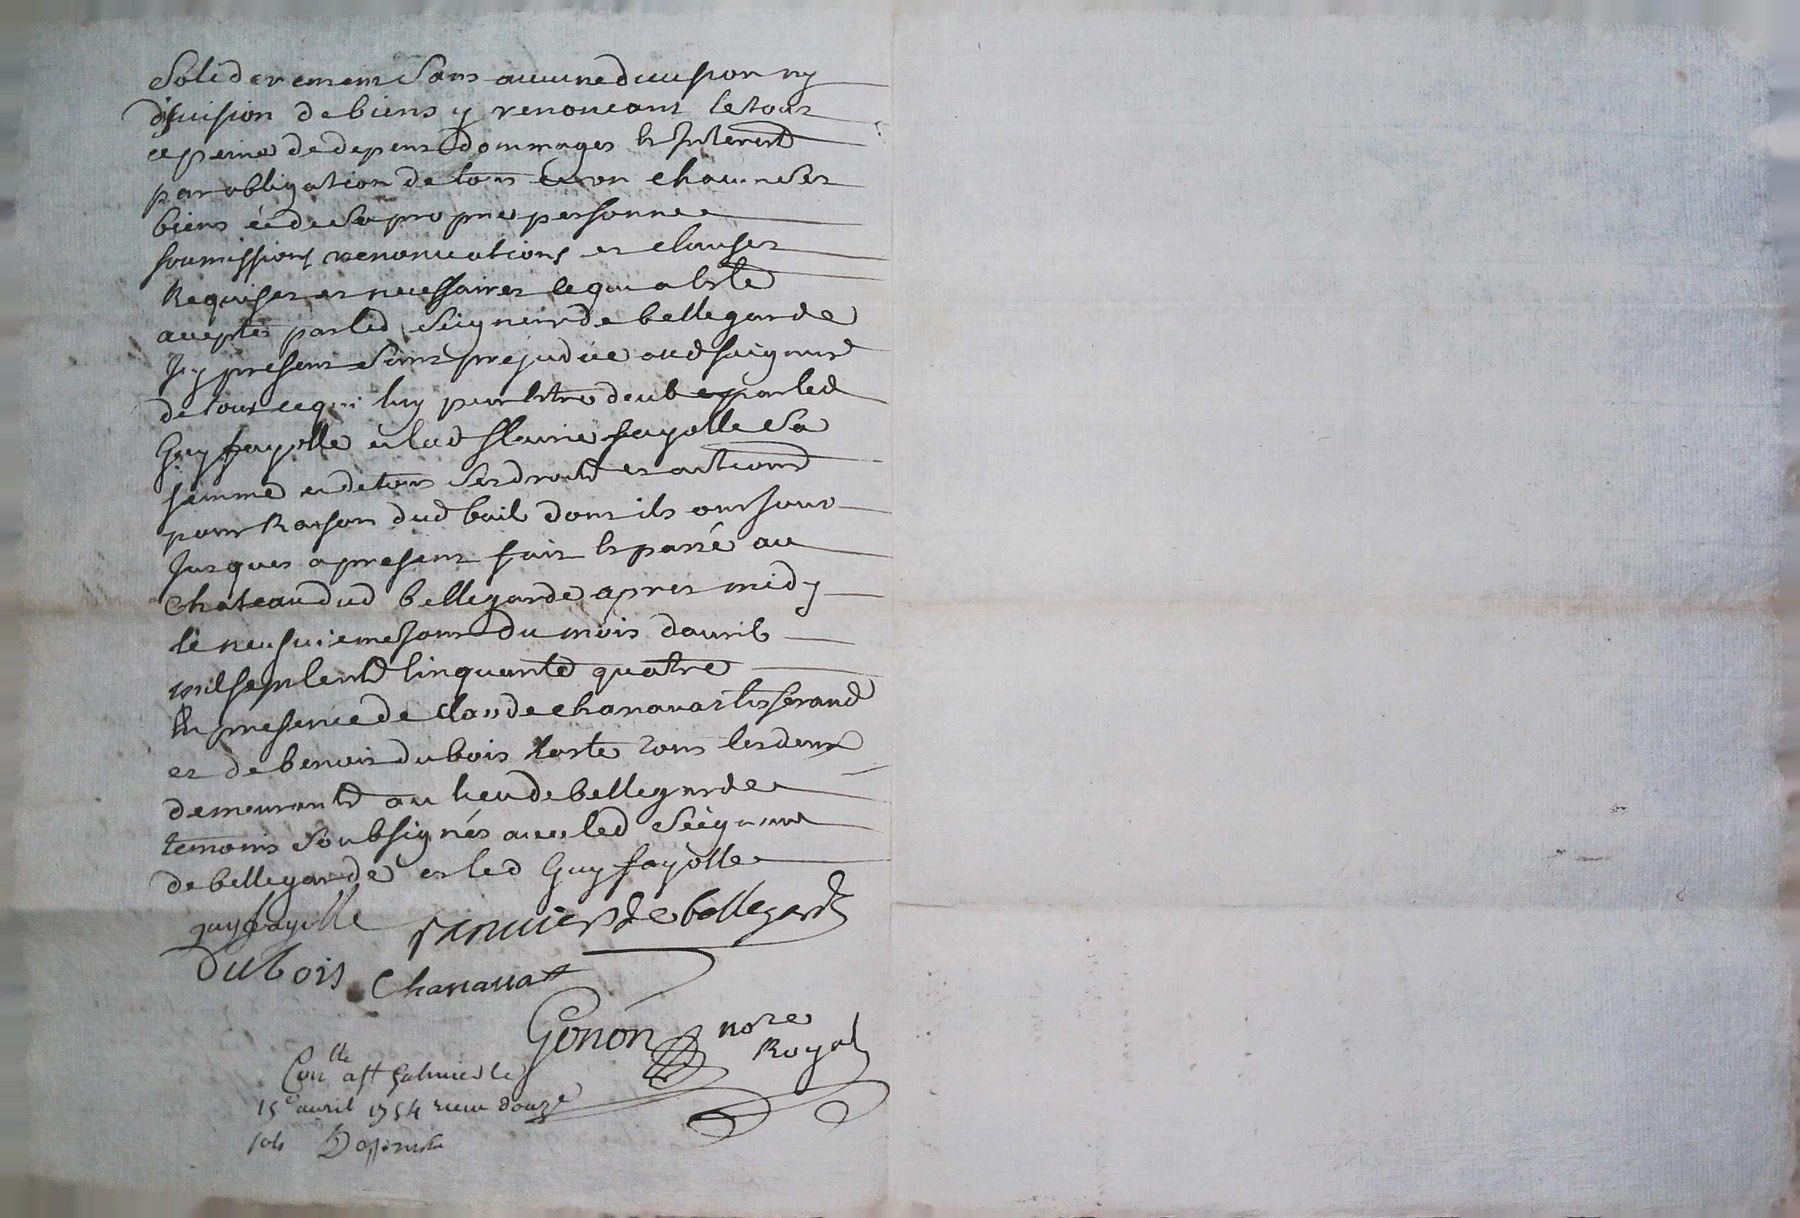 Soliderement Sans aucune division ny
discusion de biens y renoncant le tout
a peine de depens dommages & Interest
par obligation de tous un chacun Ses
biens & de Sa propre personne
soumissions renonciations et clauses
Requises et necessaires ce qui a Esté
accepté par led Seigneur de bellegarde
Icy present Sans prejudice aud seigneur
de tout ce qui luy peut Estre deub par led
Guy fayolle et lad fleurie fayolle Sa
femme et de tous Ses droits et actions
pour Raison dud bail dont ils ont Jouï
Jusques a present fait & passé au
Chateau dud bellegarde apres midy
le neufuieme Jour du mois davril
mil sept Cents Cinquante quatre
En presence de claude chanavat tisserand
et de benoit dubois hoste tous les deux
demeurants au lieu de bellegarde
temoins Soubsignés avec led Seigneur
de bellegarde et led Guy fayolle
guy fayolle de bellegarde
Dubois Chanavat
Gonon nore
Royal
Conlle a St Galmier le
15e avril 1754 receu douze
sols